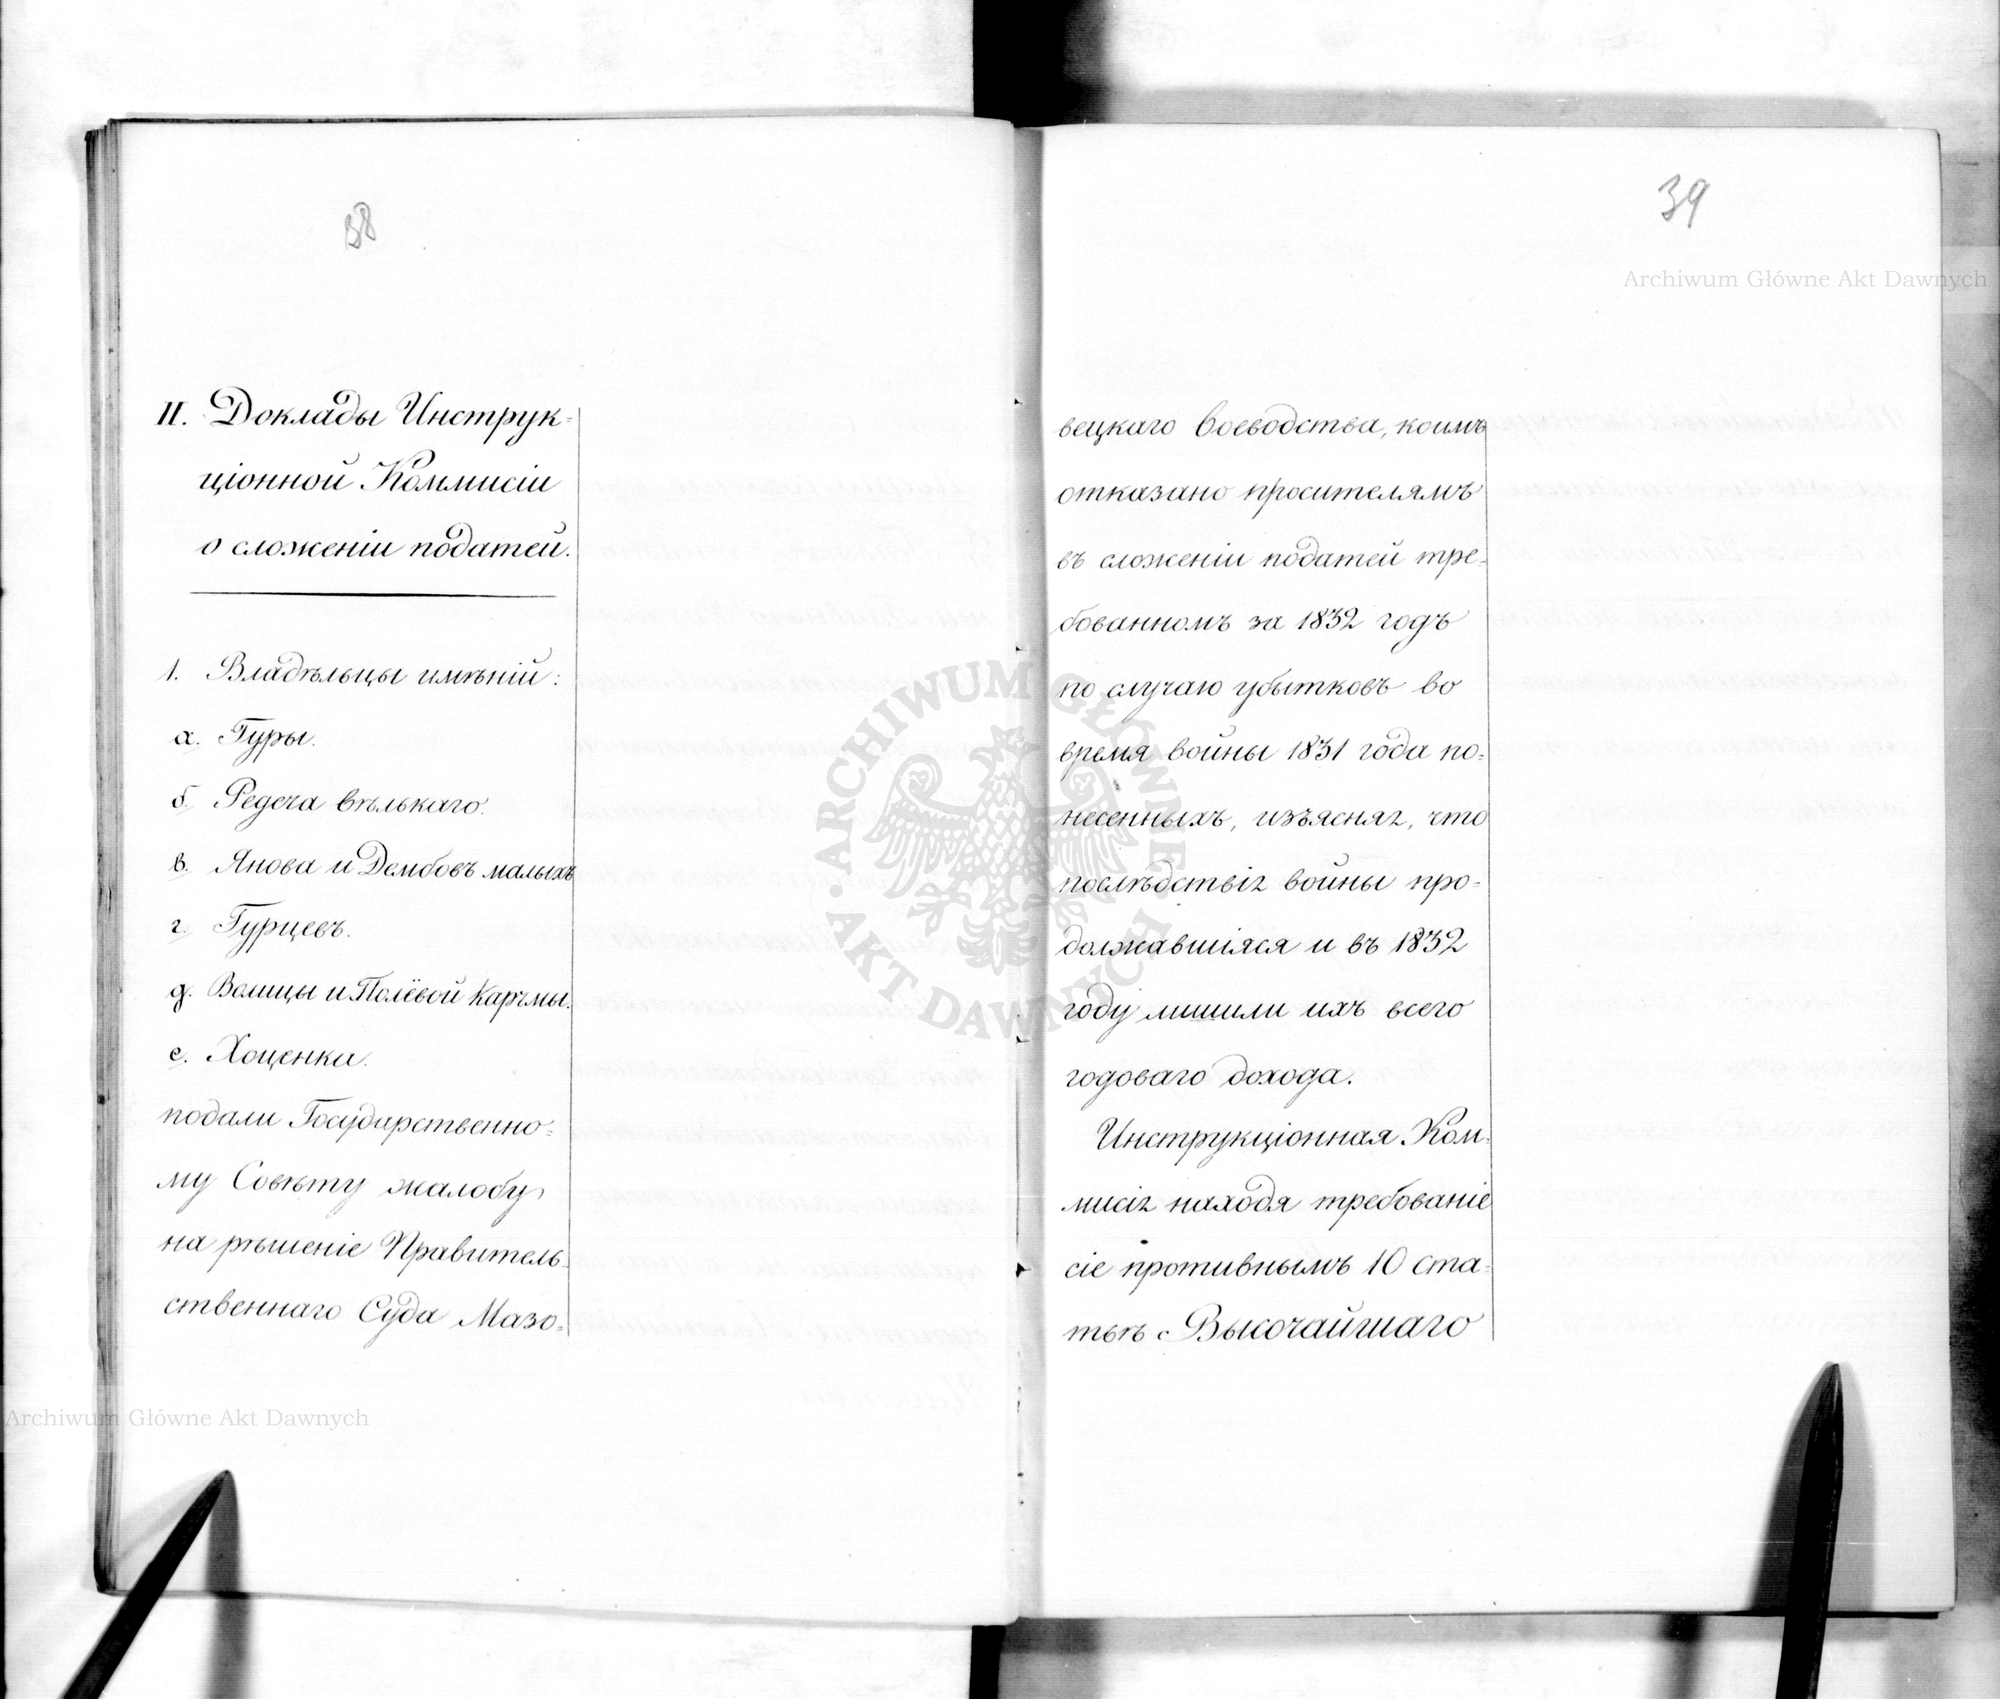 38
II. Доклады Инструк=
ціонной Коммисіи
о сложеніи податей.
1. Владѣльцы имѣній:
а. Гуры.
б. Редеча вѣлькаго.
в. Янова и Дембовъ малыхъ
г. Гурцевъ.
д. Волицы и Полёвой Карчмы.
е. Хоценки.
подали Государственно=
му Совѣту жалобу
на рѣшеніе Правитель=
ственнаго Суда Мазо=
39
Archiwum Główne Akt Dawnych
вецкаго Воеводства, коимъ
отказано просителямъ
въ сложеніи податей тре=
бованномъ за 1832 годъ
по случаю убытковъ во
время войны 1831 года по=
несенныхъ, изъясняя, что
послѣдствія войны про=
должавшіяся и въ 1832
году лишили ихъ всего
годоваго дохода.
Инструкціонная Ком=
мисія находя требованіе
сіе противнымъ 10 ста=
тьѣ Высочайшаго
ARCHIWUM GŁÓWNE AKT DAWNYCH
Archiwum Główne Akt Dawnych